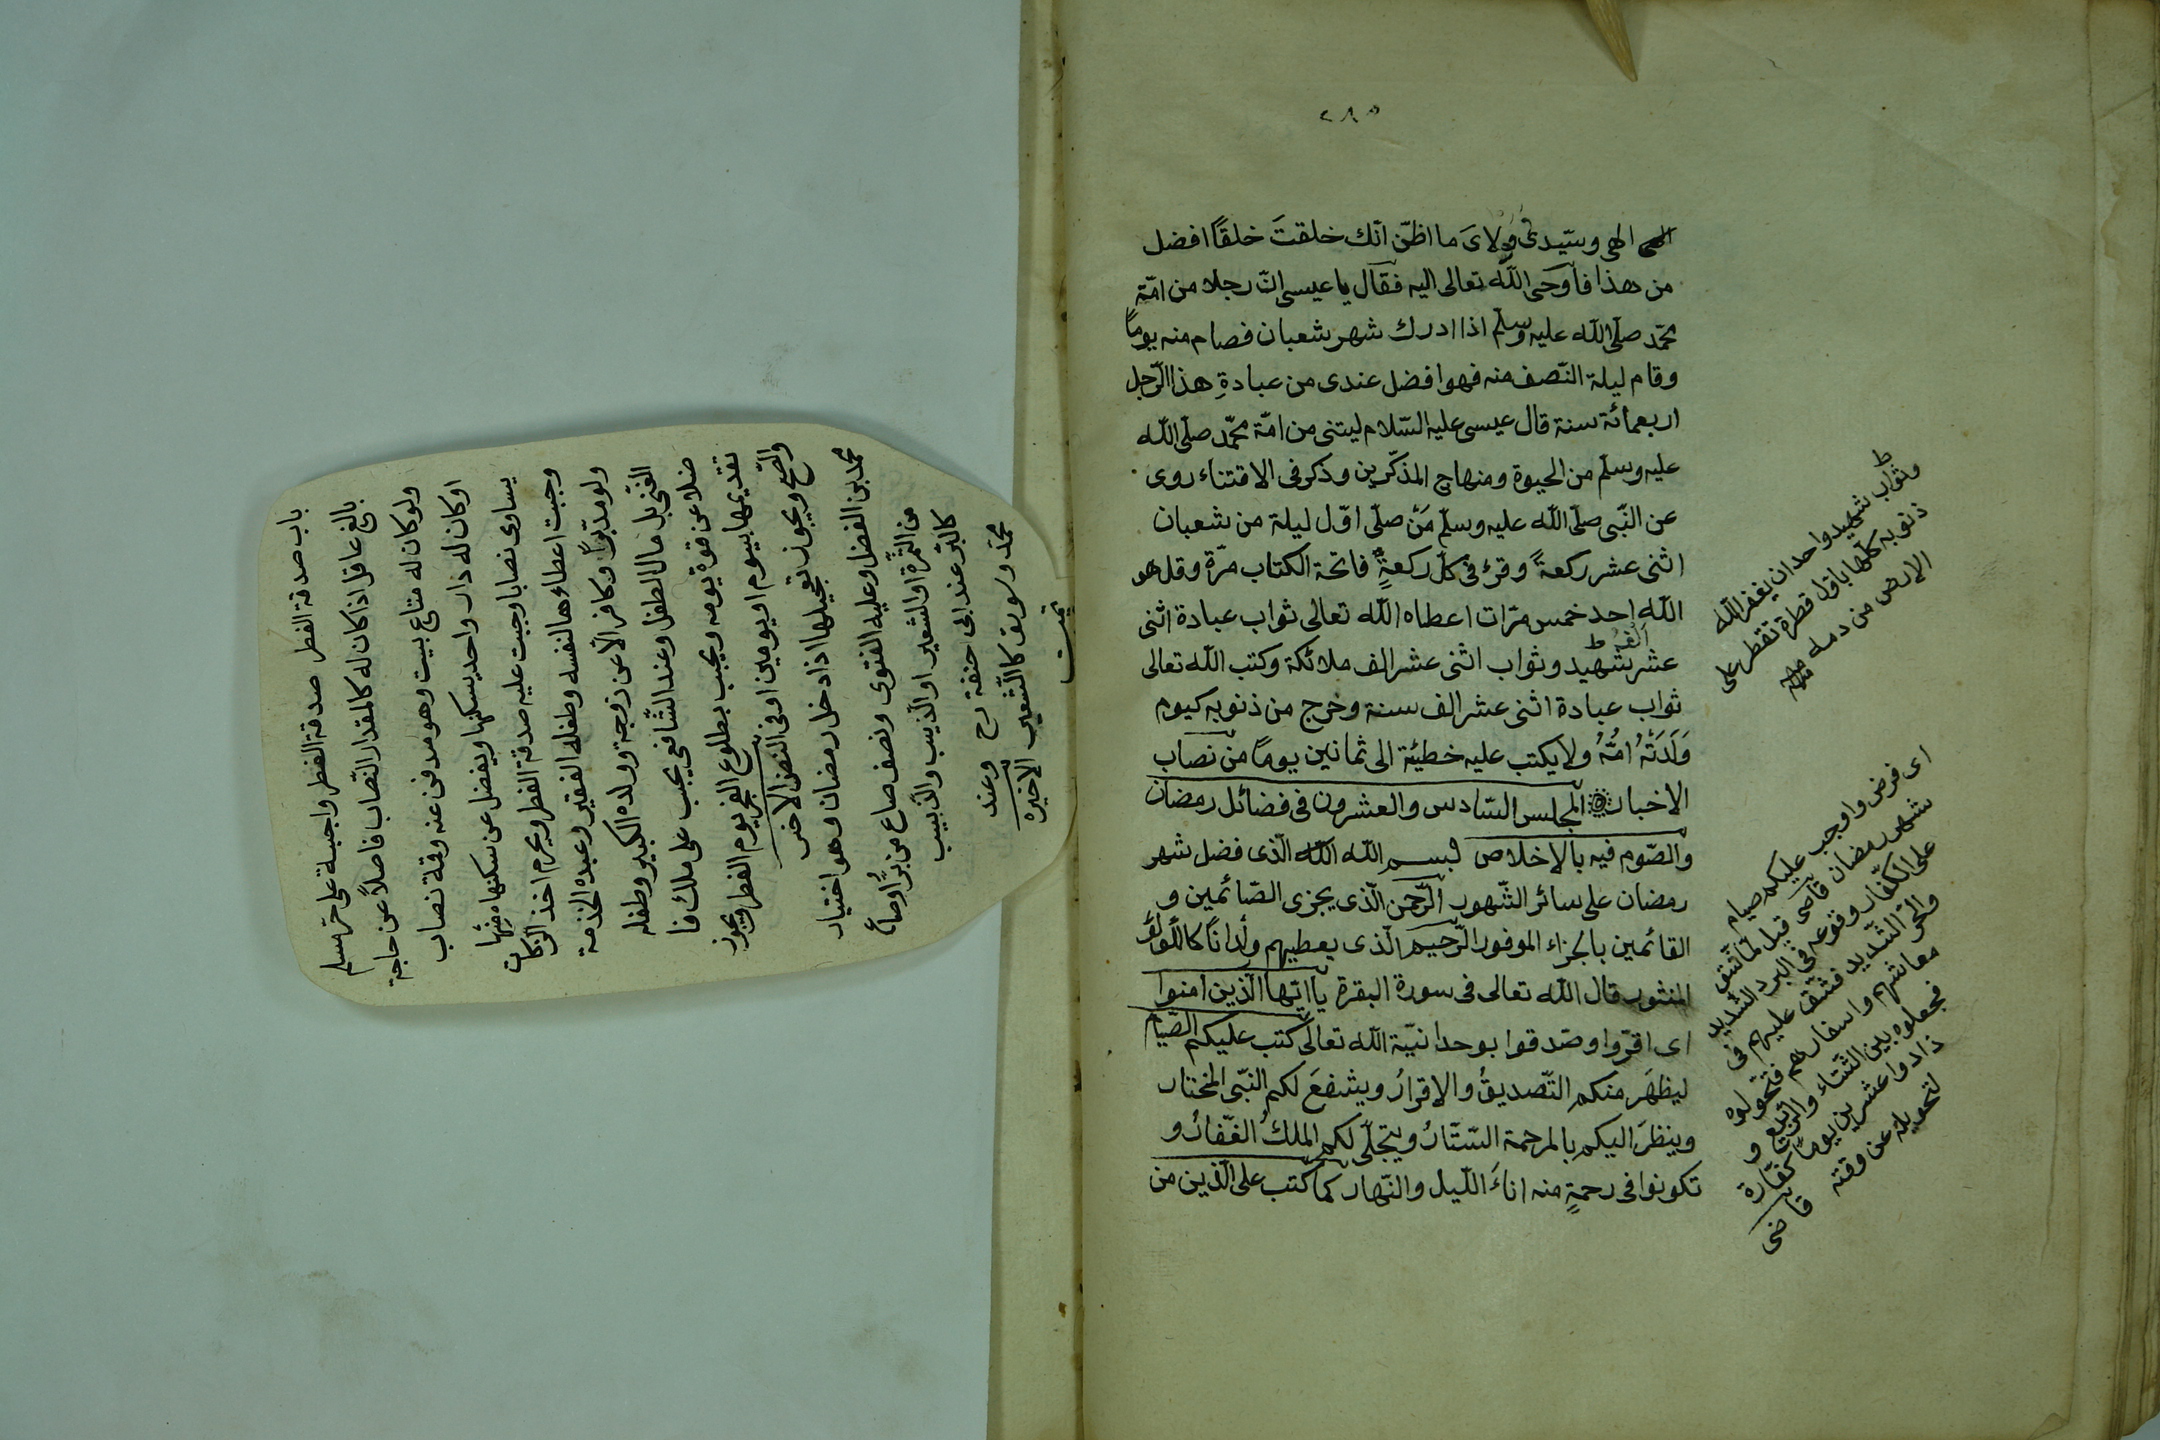 ٢٨٥
الهى وسيّدى ومولاى ما اظنّ انّك خلقتَ خلقًا افضل
من هذا فاَوحَى اللّه تعالى اليه فقال يا عيسى انّ رجلا من امّة
محمّد صلّى اللّه عليه وسلّم اذا ادرك شهر شعبان فصام منه يومًا
وقام ليلة النّصف منه فهو افضل عندى من عبادةِ هذا الرّجل
اربعمائة سنة قال عيسى عليه السّلام ليتنى من امّة محمّد صلّى اللّه
عليه وسلّم من الحيوة ومنهاج المذكّرين وذكر فى الاقتناء روى
عن النّبى صلّى اللّه عليه وسلّم مَنْ صلّى اوّل ليلة من شعبان
اثنى عشر ركعةً وقرئ فى كلّ ركعةٍ فاتحة الكتاب مرّة وقل هو
اللّه احد خمس مرّات اعطاه اللّه تعالى ثواب عبادة اثنى
عشر الف شهيد وثواب اثنى عشر الف ملائكة وكتب اللّه تعالى
ثواب عبادة اثنى عشر الف سنة وخرج من ذنوبه كيوم
وَلَدَتْهُ اُمُّهُ ولا يكتب عليه خطيئة الى ثمانين يومًا من نصاب
الاخبار المجلس السّادس والعشرون فى فضائل رمضان
والصّوم فيه بالاخلاص بسم اللّه اللّه الّذى فضل شهر
رمضان على سائر الشّهور الرّحمن الّذى يجزى الصّائمين و
القائمين بالجزاء الموفور الرّحيم الّذى يعطيهم ولدانًا كاللّؤلؤ
المنثور قال اللّه تعالى فى سورة البقرة يا ايّها الّذين امنوا
اى اقرّوا وصدقوا بوحدانيّة اللّه تعالى كتب عليكم الصّيام
ليظهَر منكم التّصديقُ والاقرارُ ويشفعَ لكم النّبى المختار
وينظرَ اليكم بالمرحمة السّتّارُ ويتجلّى لكم الملكُ الغفّارُ و
تكونوا فى رحمةٍ منه اناءَ اللّيل والنّهار كما كتب على الّذين من
وثواب شهيد واحد ان يغفر اللّه
ذنوبه كلّها باوّل قطرة تقطر على
الارض من دمه
اى فرض واوجب عليكم صيام
شهر رمضان قاضى قيل لمّا شقّ
على الكفّار وقوعه فى البرد الشّديد
والحرّ الشّديد فشقّ عليهم فى
معاشهم واسفارهم فتحوّلوه
فجعلوه بين الشّتاء والرّبيع و
زادوا عشرين يومًا كفّارة
لتحويله عن وقته قاضى
باب صدقة الفطر صدقة الفطر واجبة على حرّ مسلم
بالغ عاقل اذا كان له كالمقدار النّصاب فاصلًا عن حاجة
ولو كان له متاع بيت وهو مدفن عنه وقيمة نصاب
او كان له دار واحد يسكنها ويفضل عن سكنها منها
يساوى نصابا وجبت عليه صدقة الفطر ويحرم اخذ الزّكات
وجبت اعطاءها لنفسه وطفله الفقير وعبده الخذمة
ولو مدبّرًا وكافر الّا عن زوجة وولده الكبير وطفله
الغنى بل مال الطفل وعند الشّافعى يجب على ملك فا
ضلا عن قوة يومه ويجب بطلوع الفجر يوم الفطر ويجوز
تقديمها بيوم او يومين او فى النّصف الاخر
والصّحّ ويجوز تعجيلها اذا دخل رمضان وهو اختيار
محمد بن الفضل وعليه الفتوى ونصف صاع من برّ او صاع
من التّمرة او الشّعير او الذبيب والذبيب
كالبرّ عند ابى حنفة رح وعند
محمّد وسويق كالشّعير الاخيره
تمت